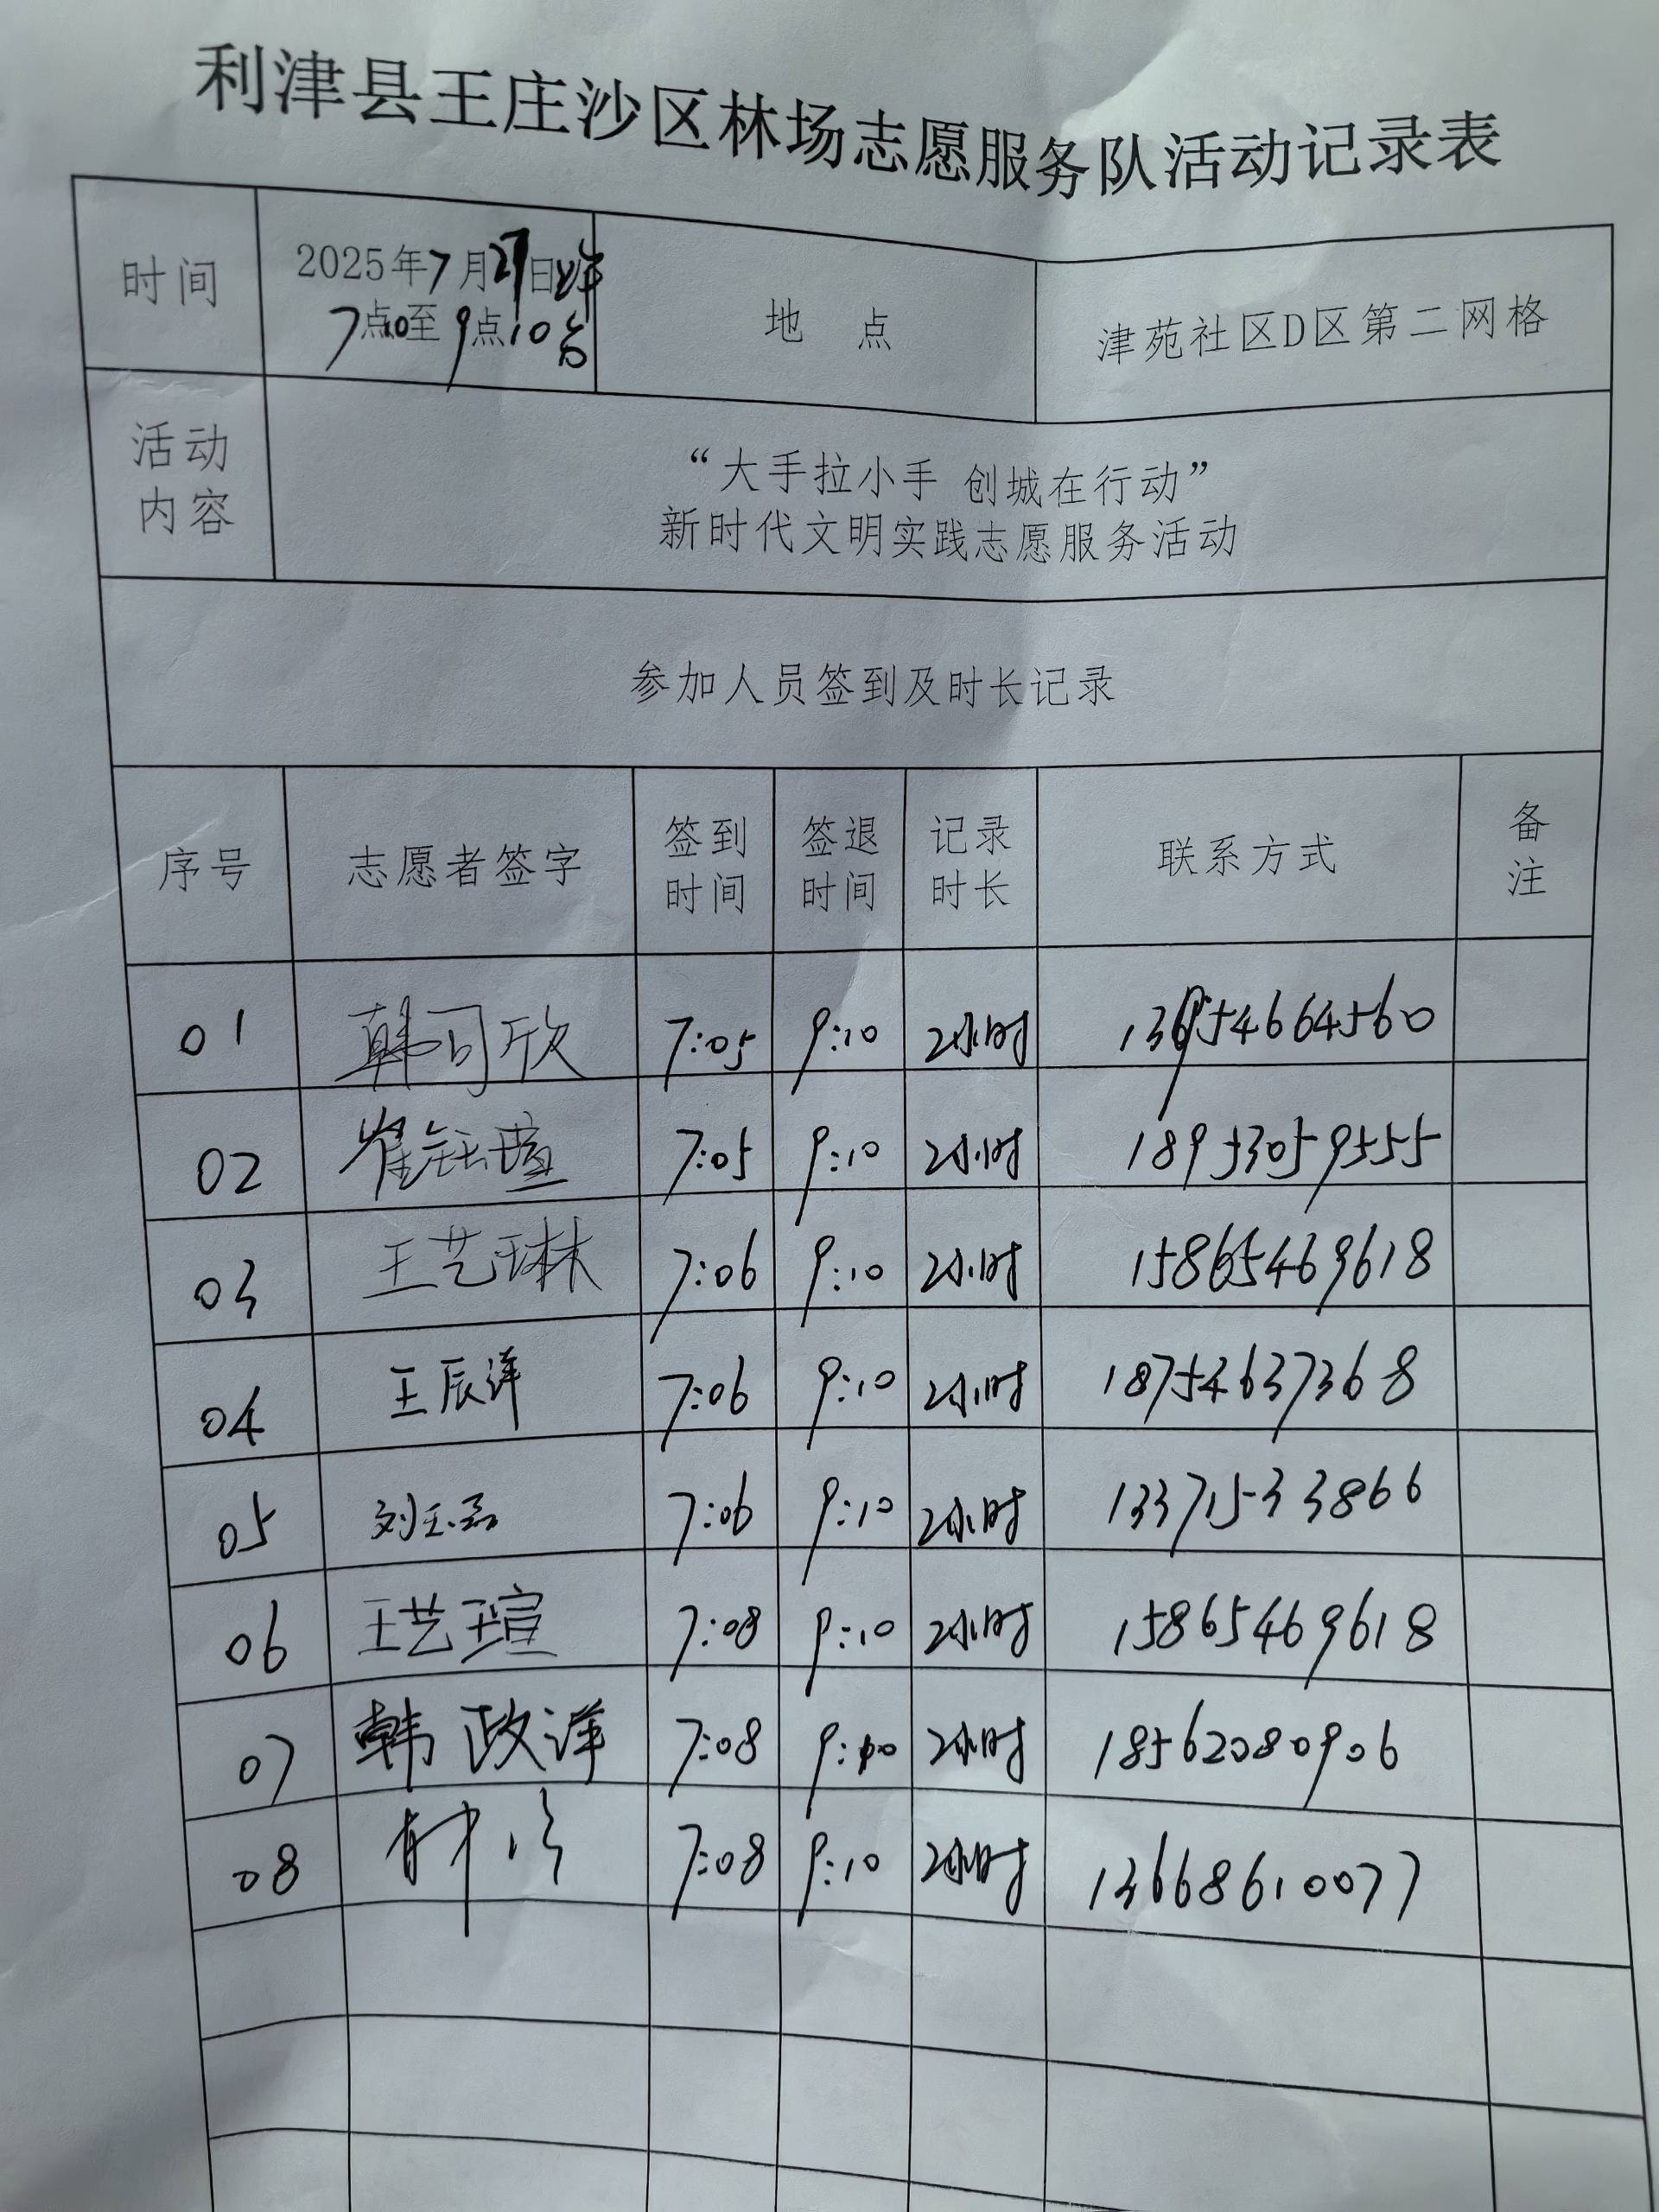 利津县王庄沙区林场志愿服务队活动记录表
时间 2025年7月27日上午
7点10至9点10分
地 点 津苑社区D区第二网格
活动
内容
“大手拉小手 创城在行动”
新时代文明实践志愿服务活动
参加人员签到及时长记录
序号 志愿者签字 签到时间 签退时间 记录时长 联系方式 备注
01 韩司欣 7:05 9:10 2小时 13954664560
02 崔钰瑄 7:05 9:10 2小时 18953059555
03 王艺琳 7:06 9:10 2小时 15865469618
04 王辰洋 7:06 9:10 2小时 18754637368
05 刘玉磊 7:06 9:10 2小时 13371533866
06 王艺瑄 7:08 9:10 2小时 15865469618
07 韩政洋 7:08 9:10 2小时 18562080906
08 7:08 9:10 2小时 13668610077